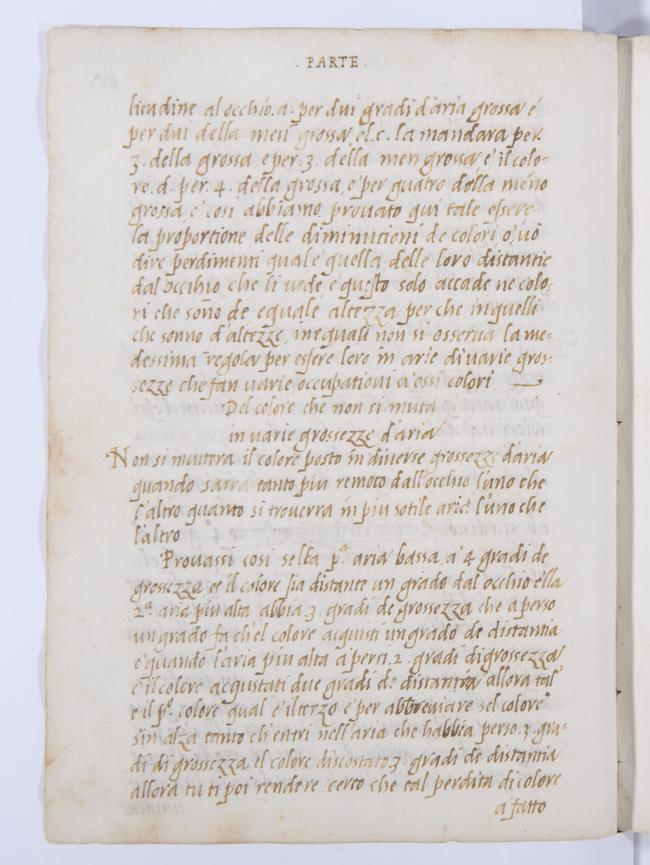 . PARTE .
litudine al occhio .a. per dui gradi d'aria grossa é
per dui della men grossa el .c. la mandara per.
3. della grossa e per .3. della men grossa e il colo-
re .d. per .4. della grossa, e per quatro della meno
grossa, e cosi abbiamo provato qui tale essere
la proportione delle diminutioni de colori o, vó
dire perdimenti qual e quella delle loro distantie
dal occhio che li vede e questo solo accade ne colo-
ri che sonno de equale altezza per che in quelli
che sonno d'altezze, inequali non si osserva la me-
dessima regola per essere loro in arie di varie gros-
sezze che fan varie occupationi a essi colori
Del colore che non si muta
in varie grossezze d'aria
Non si muttera il colore posto in diverse grossezze d'aria
quando sarra tanto piu remoto dall'occhio l'uno che
l'altro quanto si troverra in piu sotile aria l'uno che
l'altro
Provassi cosi se l'a pª aria bassa a 4 gradi de
grossezza et il colore sia distante un grado dal occhio e lla
2ª aria piu alta abbia .3. gradi de grossezza che a perso
un grado fa ch'el colore acquisti un grado de distantia
e quando l'aria piu alta a persi .2. gradi di grossezza
e il colore acqustati due gradi de distantia allora tal
e il pº colere qual e il terzo e per abbreviare se l colore
s'in alza tanto ch entri nell'aria che habbia perso .3. gra-
di di grossezza el colore discostato 3. gradi de distantia
allora tu ti poi rendere certo che tal perdita di colore
a fatto